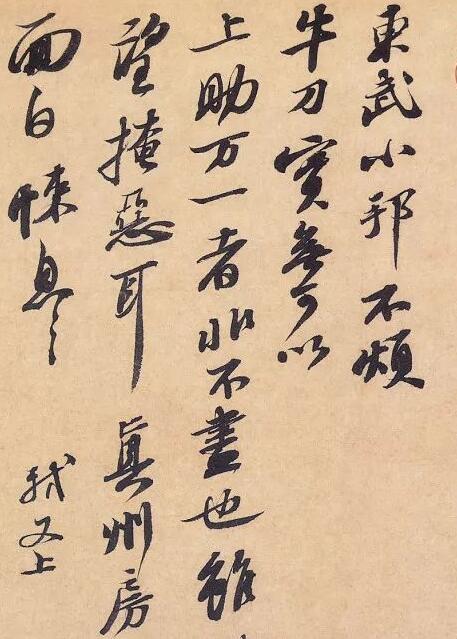 東武小邦不煩
牛刀實無可以
上助万一者非不盡也雖
望掩惡耳 真州房
面白悚息〻 軾又上